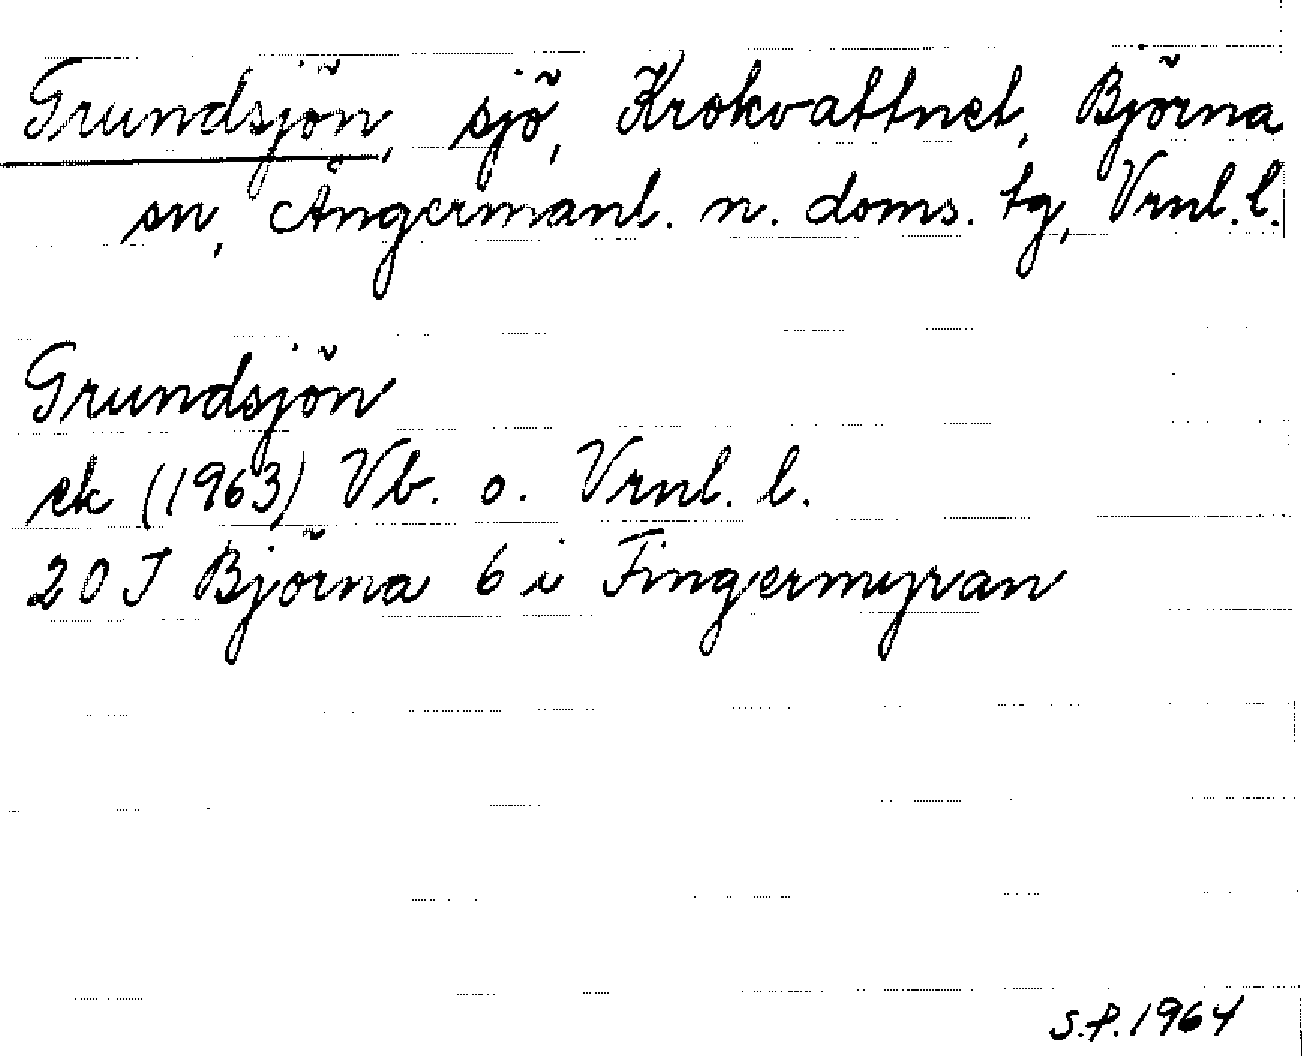 Grundsjön, sjö, Krokvattnet, Björna
sn, Ångermanl. n. doms. tg, Vrnl. l.
Grundsjön
ek (1963) Vb. o. Vrnl. l.
20 J Björna 6 i Fingermyran
S.P. 1964